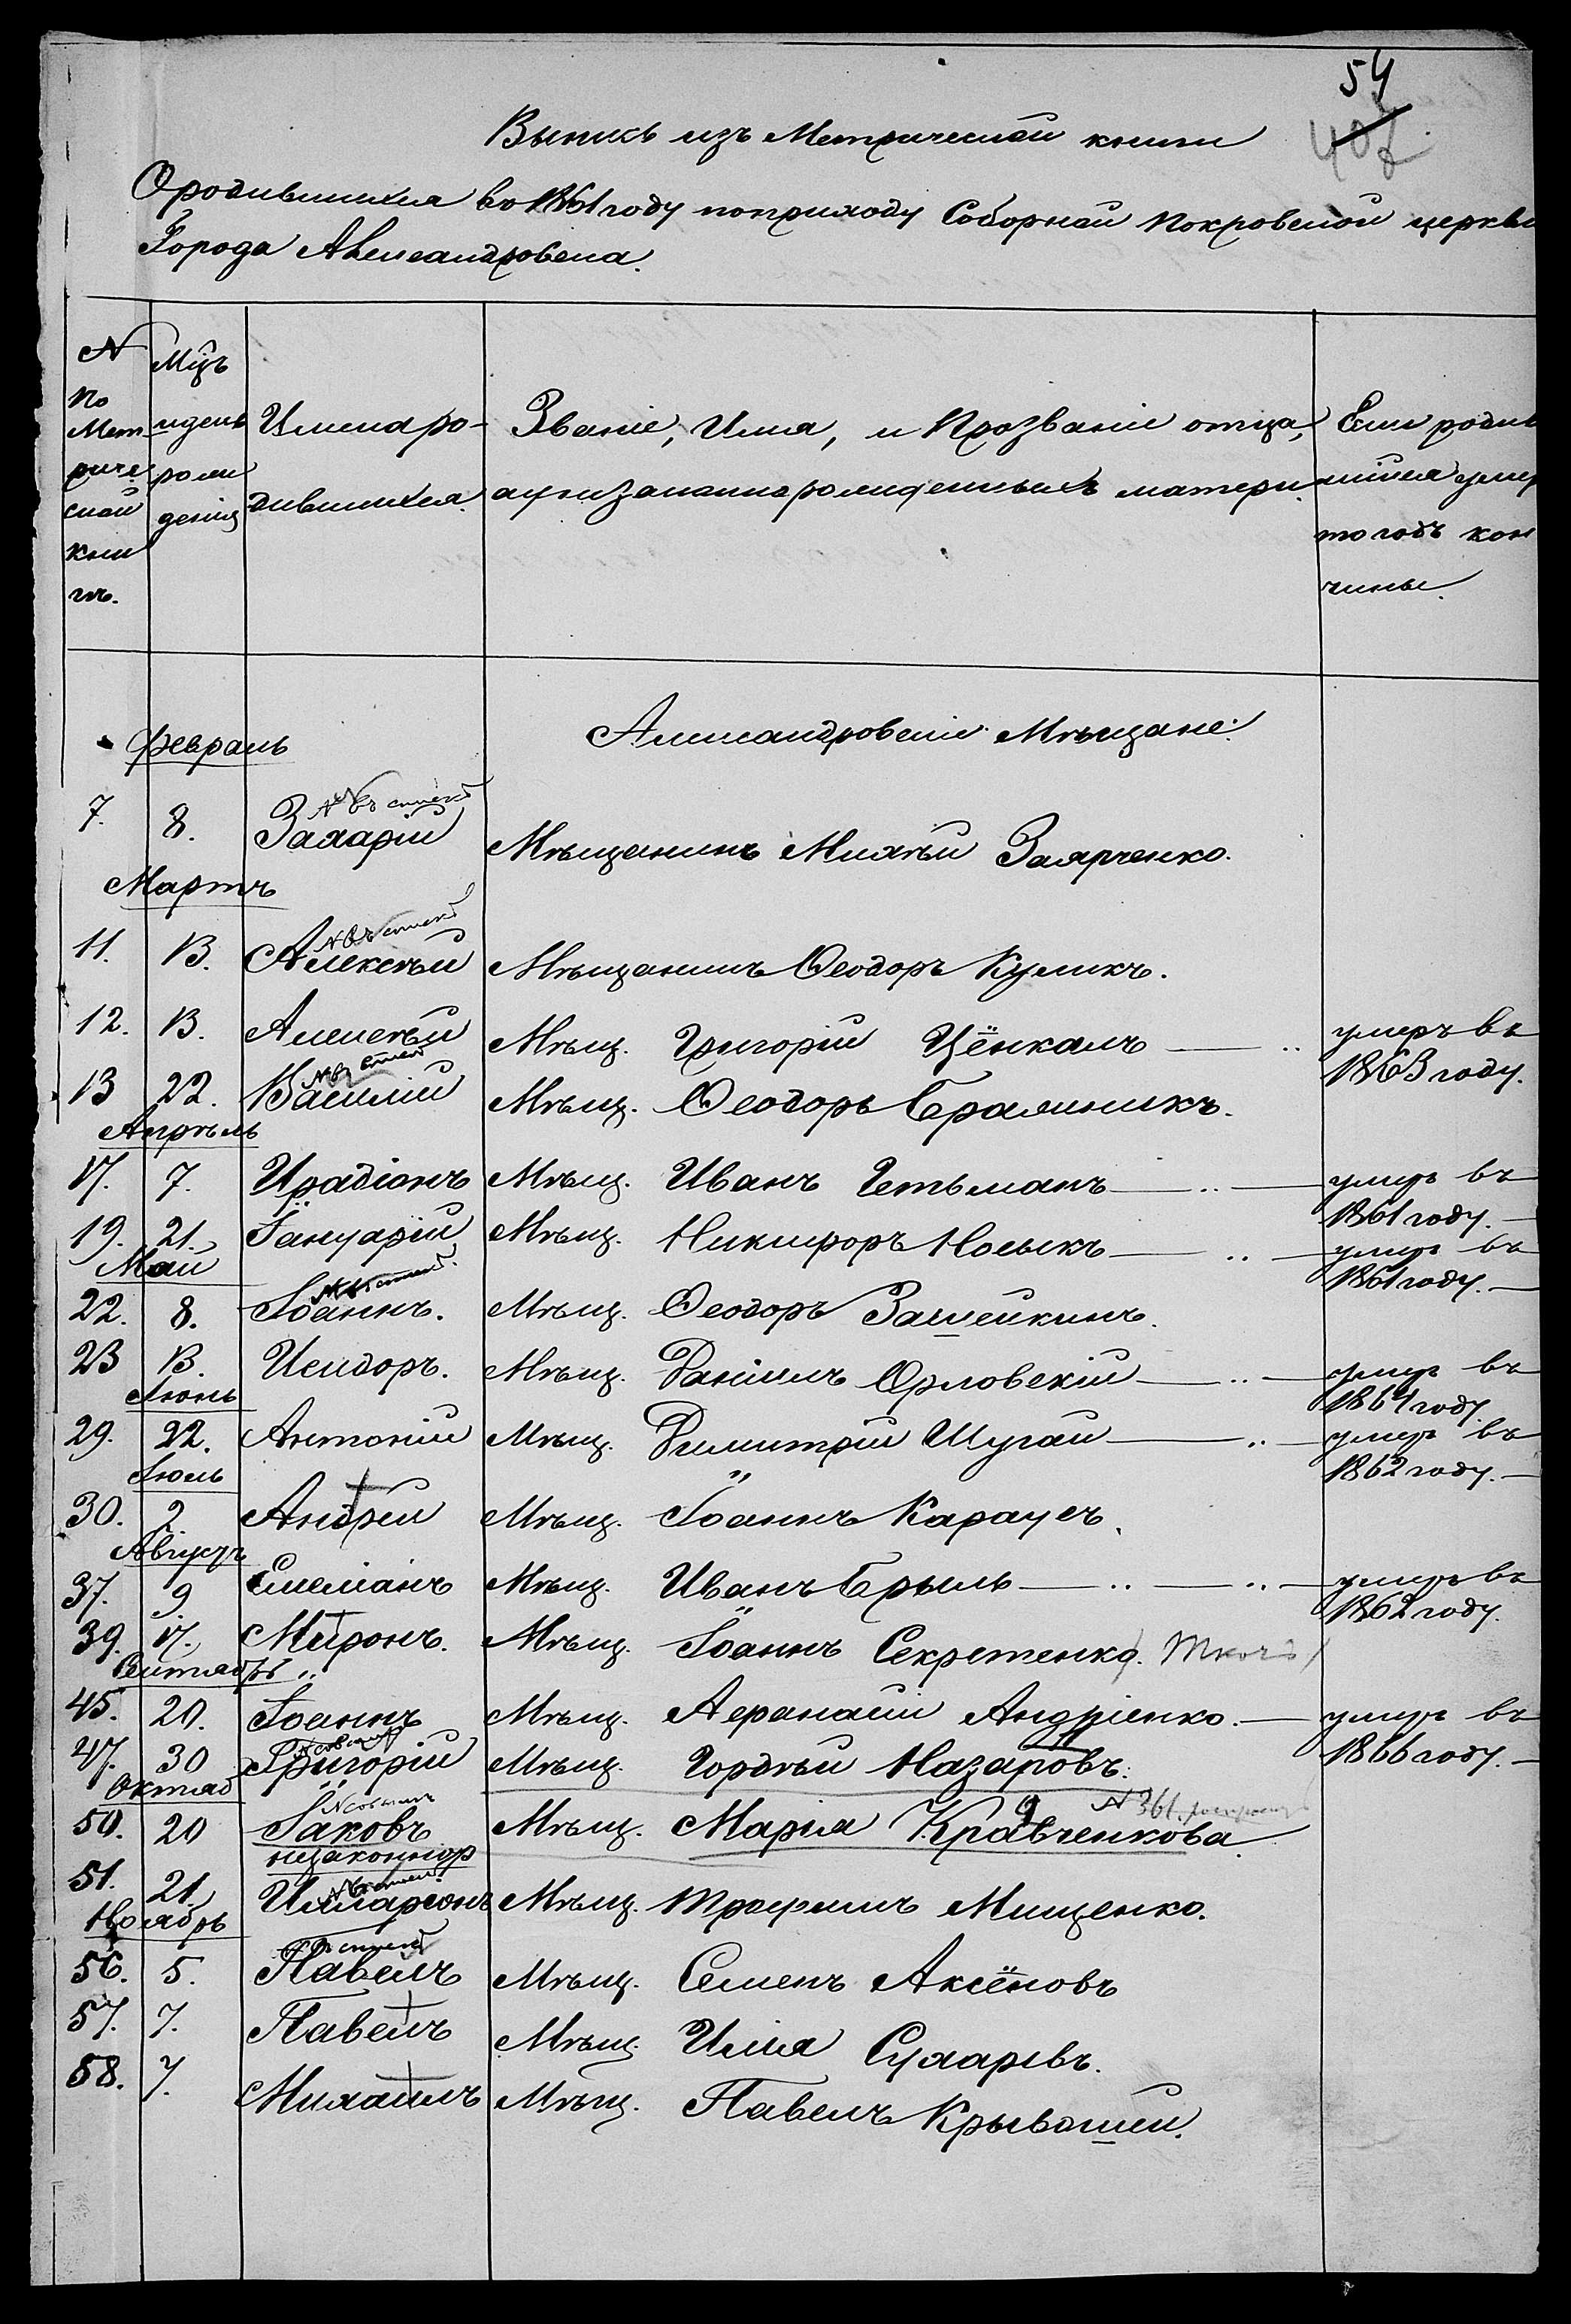 54
407
Выпись изъ Метрической книги
О родившихся въ 1861 году по приходу Соборной Покровской церкви
Города Александровска.
N по Метрической книгѣ.
Мцъ и день рождения
Имена родившихся.
Званіе, Имя, и Прозваніе отца, а у незаконнорожденныхъ матери.
Если родившійся умер то годъ кончины.
Февраль
Александровскіе Мѣщане:
7. 8. Захарій Мѣщанинъ Михѣй Заярченко.
Мартъ
11. 13. Алексѣй Мѣщанинъ Ѳеодоръ Куликъ.
12. 13. Алексѣй Мѣщ. Григорій Цёнкалъ умеръ въ 1863 году.
13 22. Василій Мѣщ. Ѳеодоръ Бражникъ.
Апрѣль
17. 7. Иродіонъ Мѣщ. Иванъ Гетьманъ умеръ въ 1861 году.
19. 21. Іануарій Мѣщ. Никифоръ Носыкъ умеръ въ 1861 году.
Май
22. 8. Іоаннъ. Мѣщ. Ѳеодоръ Зашейкинъ.
23 13. Исидоръ. Мѣщ. Даніилъ Орловскій умеръ въ 1861 году.
Іюнь
29. 22. Антоній Мѣщ. Димитрій Шугай умеръ въ 1862 году.
Іюль
30. 2. Андрей Мѣщ. Іоаннъ Караусъ.
Августъ
37. 9. Емеліанъ Мѣщ. Иванъ Брыль умеръ въ 1862 году.
39. 17. Миронъ. Мѣщ. Іоаннъ Секретенко. Ткачъ
Сентябрь
45. 20. Іоаннъ Мѣщ. Афанасій Андріенко. умеръ въ 1866 году.
47. 30 Григорій Мѣщ. Гордѣй Назаровъ.
Октяб
50. 20 Іаковъ незаконнор Мѣщ. Марія Кравченкова. N 361.
51. 21. Илларіонъ Мѣщ. Трофимъ Мищенко.
Ноябрь
56. 5. Павелъ Мѣщ. Семенъ Аксёновъ
57. 7. Павелъ Мѣщ. Илія Сухаревъ.
58. 7. Михаилъ Мѣщ. Павелъ Крывошей.